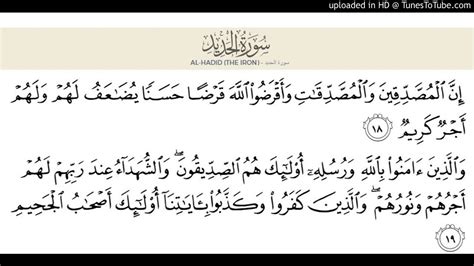 uploaded in HD @ TunesToTube.com
سورة الحديد
AL-HADID (THE IRON) - سورة الحديد
إِنَّ ٱلْمُصَّدِّقِينَ وَٱلْمُصَّدِّقَٰتِ وَأَقْرَضُوا۟ ٱللَّهَ قَرْضًا حَسَنًا يُضَٰعَفُ لَهُمْ وَلَهُمْ
أَجْرٌ كَرِيمٌ ١٨
وَٱلَّذِينَ ءَامَنُوا۟ بِٱللَّهِ وَرُسُلِهِۦٓ أُو۟لَٰٓئِكَ هُمُ ٱلصِّدِّيقُونَ ۖ وَٱلشُّهَدَآءُ عِندَ رَبِّهِمْ لَهُمْ
أَجْرُهُمْ وَنُورُهُمْ ۖ وَٱلَّذِينَ كَفَرُوا۟ وَكَذَّبُوا۟ بِـَٔايَٰتِنَآ أُو۟لَٰٓئِكَ أَصْحَٰبُ ٱلْجَحِيمِ
١٩